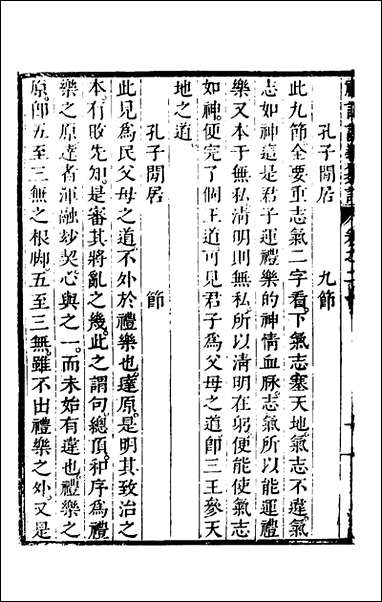 孔子閒居　九節
此九節全要重志氣二字看。下氣志塞天地氣志不違氣
志如神這是君子運禮樂的神情血脉。志氣所以能運禮
樂又本于無私清明則無私。所以清明在躬便能使氣志
如神。便完了個王道可見君子為父母之道即三王參天
地之道。
孔子閒居　節
此見為民父母之道不外於禮樂也。達原。是明其致治之
本。有敗先知。是審其將亂之幾。此之謂句總頂。和序為禮
樂之原達者渾融妙契。心與之一。而未始有違也。禮樂之
原。即五至三無之根脚。五至三無。雖不出禮樂之外。又是